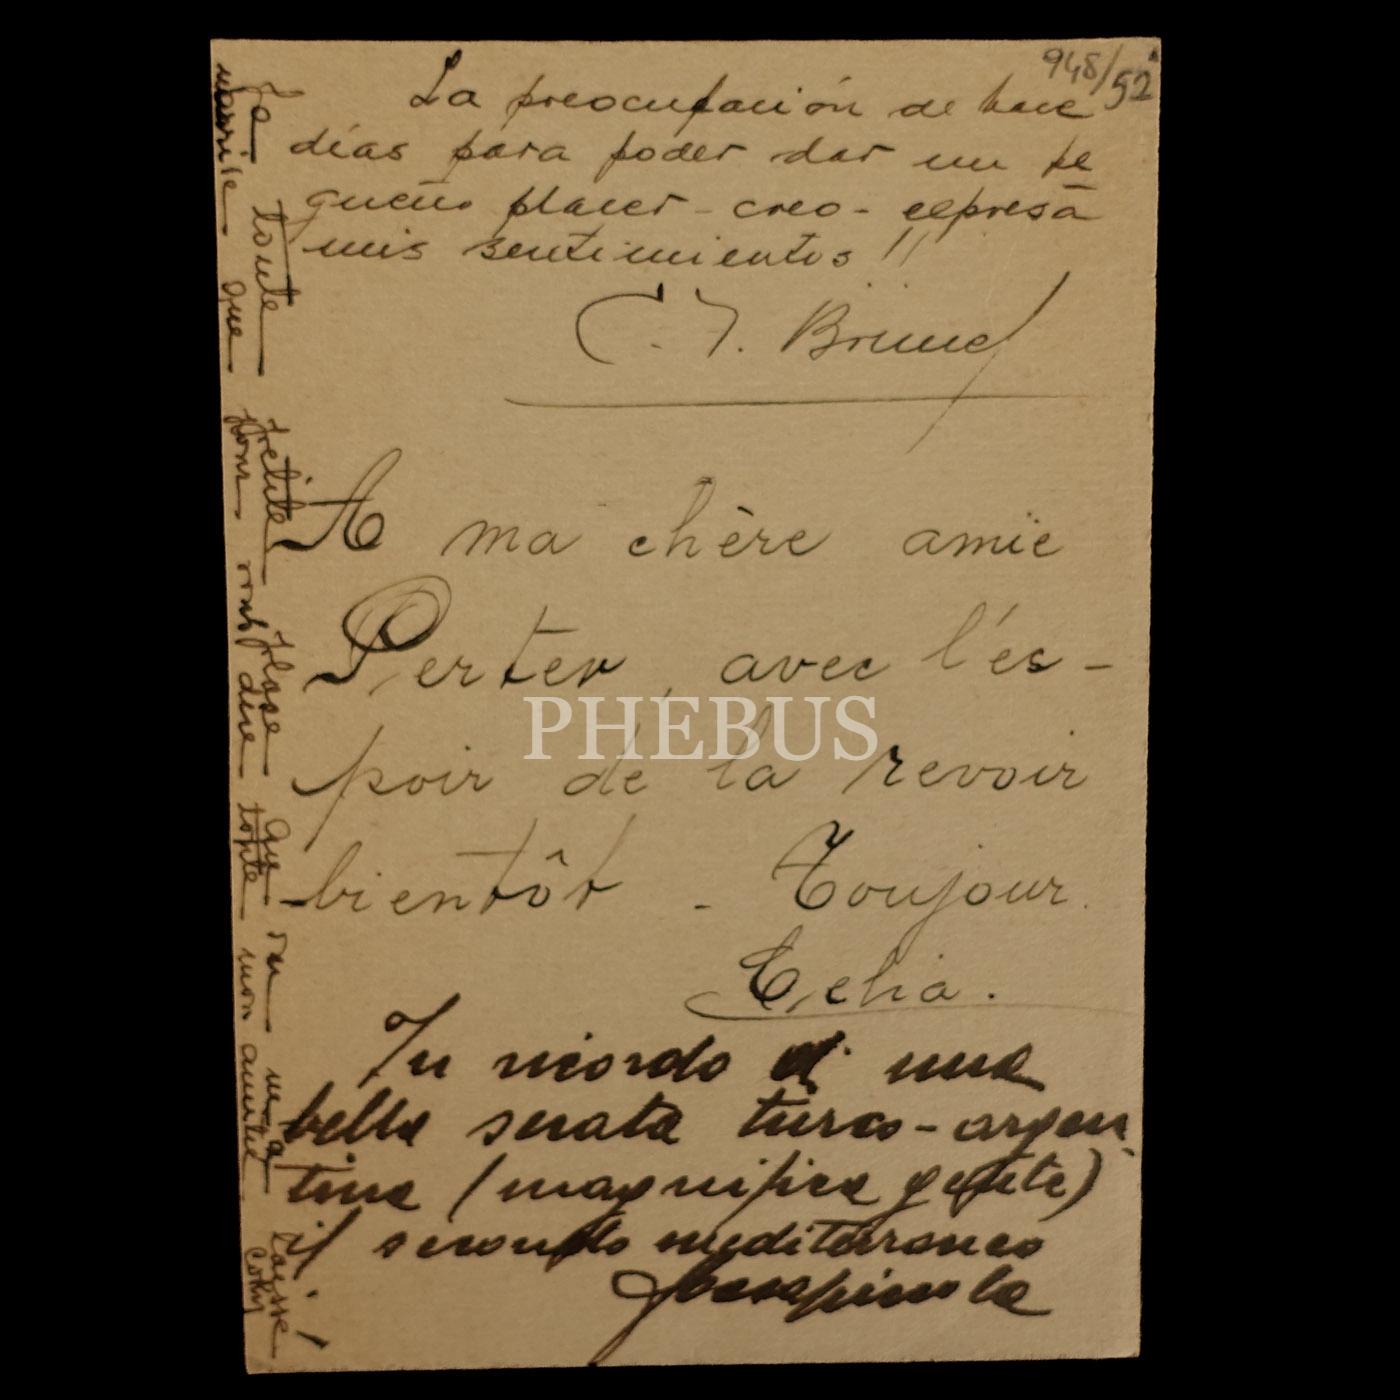 948/52
La preocupación de hace
días para poder dar un pe
queño placer - creo - expresa
mis sentimientos !!
C. J.
A ma chère amïe
Perter, avec l'és-
poir de la revoir
bientôt - Toujour.
Celia.
In ricordo di una
bella serata turco-argen
tina (magnifica gente)
il secondo mediterraneo
La toute petite place qu m'a laissé
que pour vous dire toute mon amitié
PHEBUS